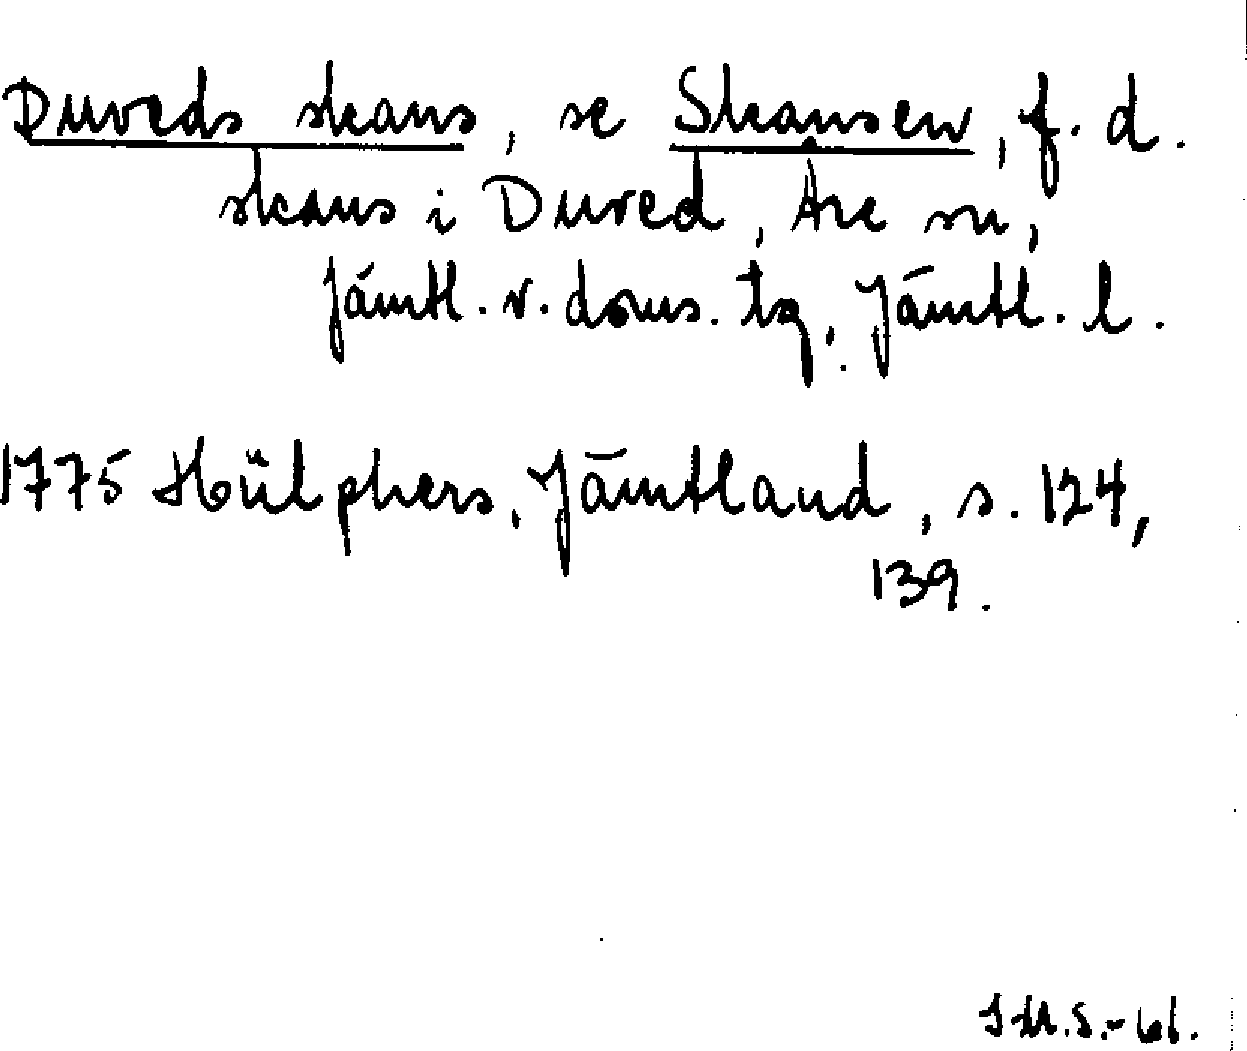 Duveds skans, se Skansen, f. d.
skans i Duved, Åre sn,
Jämtl. v. doms. tg, Jämtl. l.
1775 Hülphers, Jämtland, s. 124,
139.
I.M.S.-61.